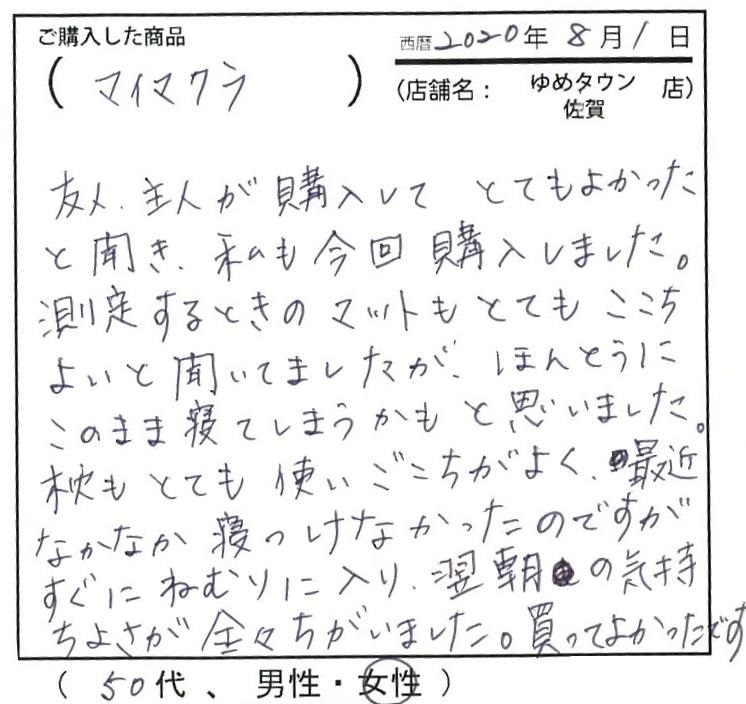 ご購入した商品
西暦2020年8月1日
(マイマクラ)
(店舗名: ゆめタウン佐賀 店)
友人、主人が購入して とてもよかった
と聞き、私も今回購入しました。
測定するときのマットもとてもここち
よいと聞いてましたが、ほんとうに
このまま寝てしまうかもと思いました。
枕もとても使いごこちがよく、最近
なかなか寝つけなかったのですが
すぐにねむりに入り、翌朝の気持
ちよさが全々ちがいました。買ってよかったです
(50代、男性・女性)